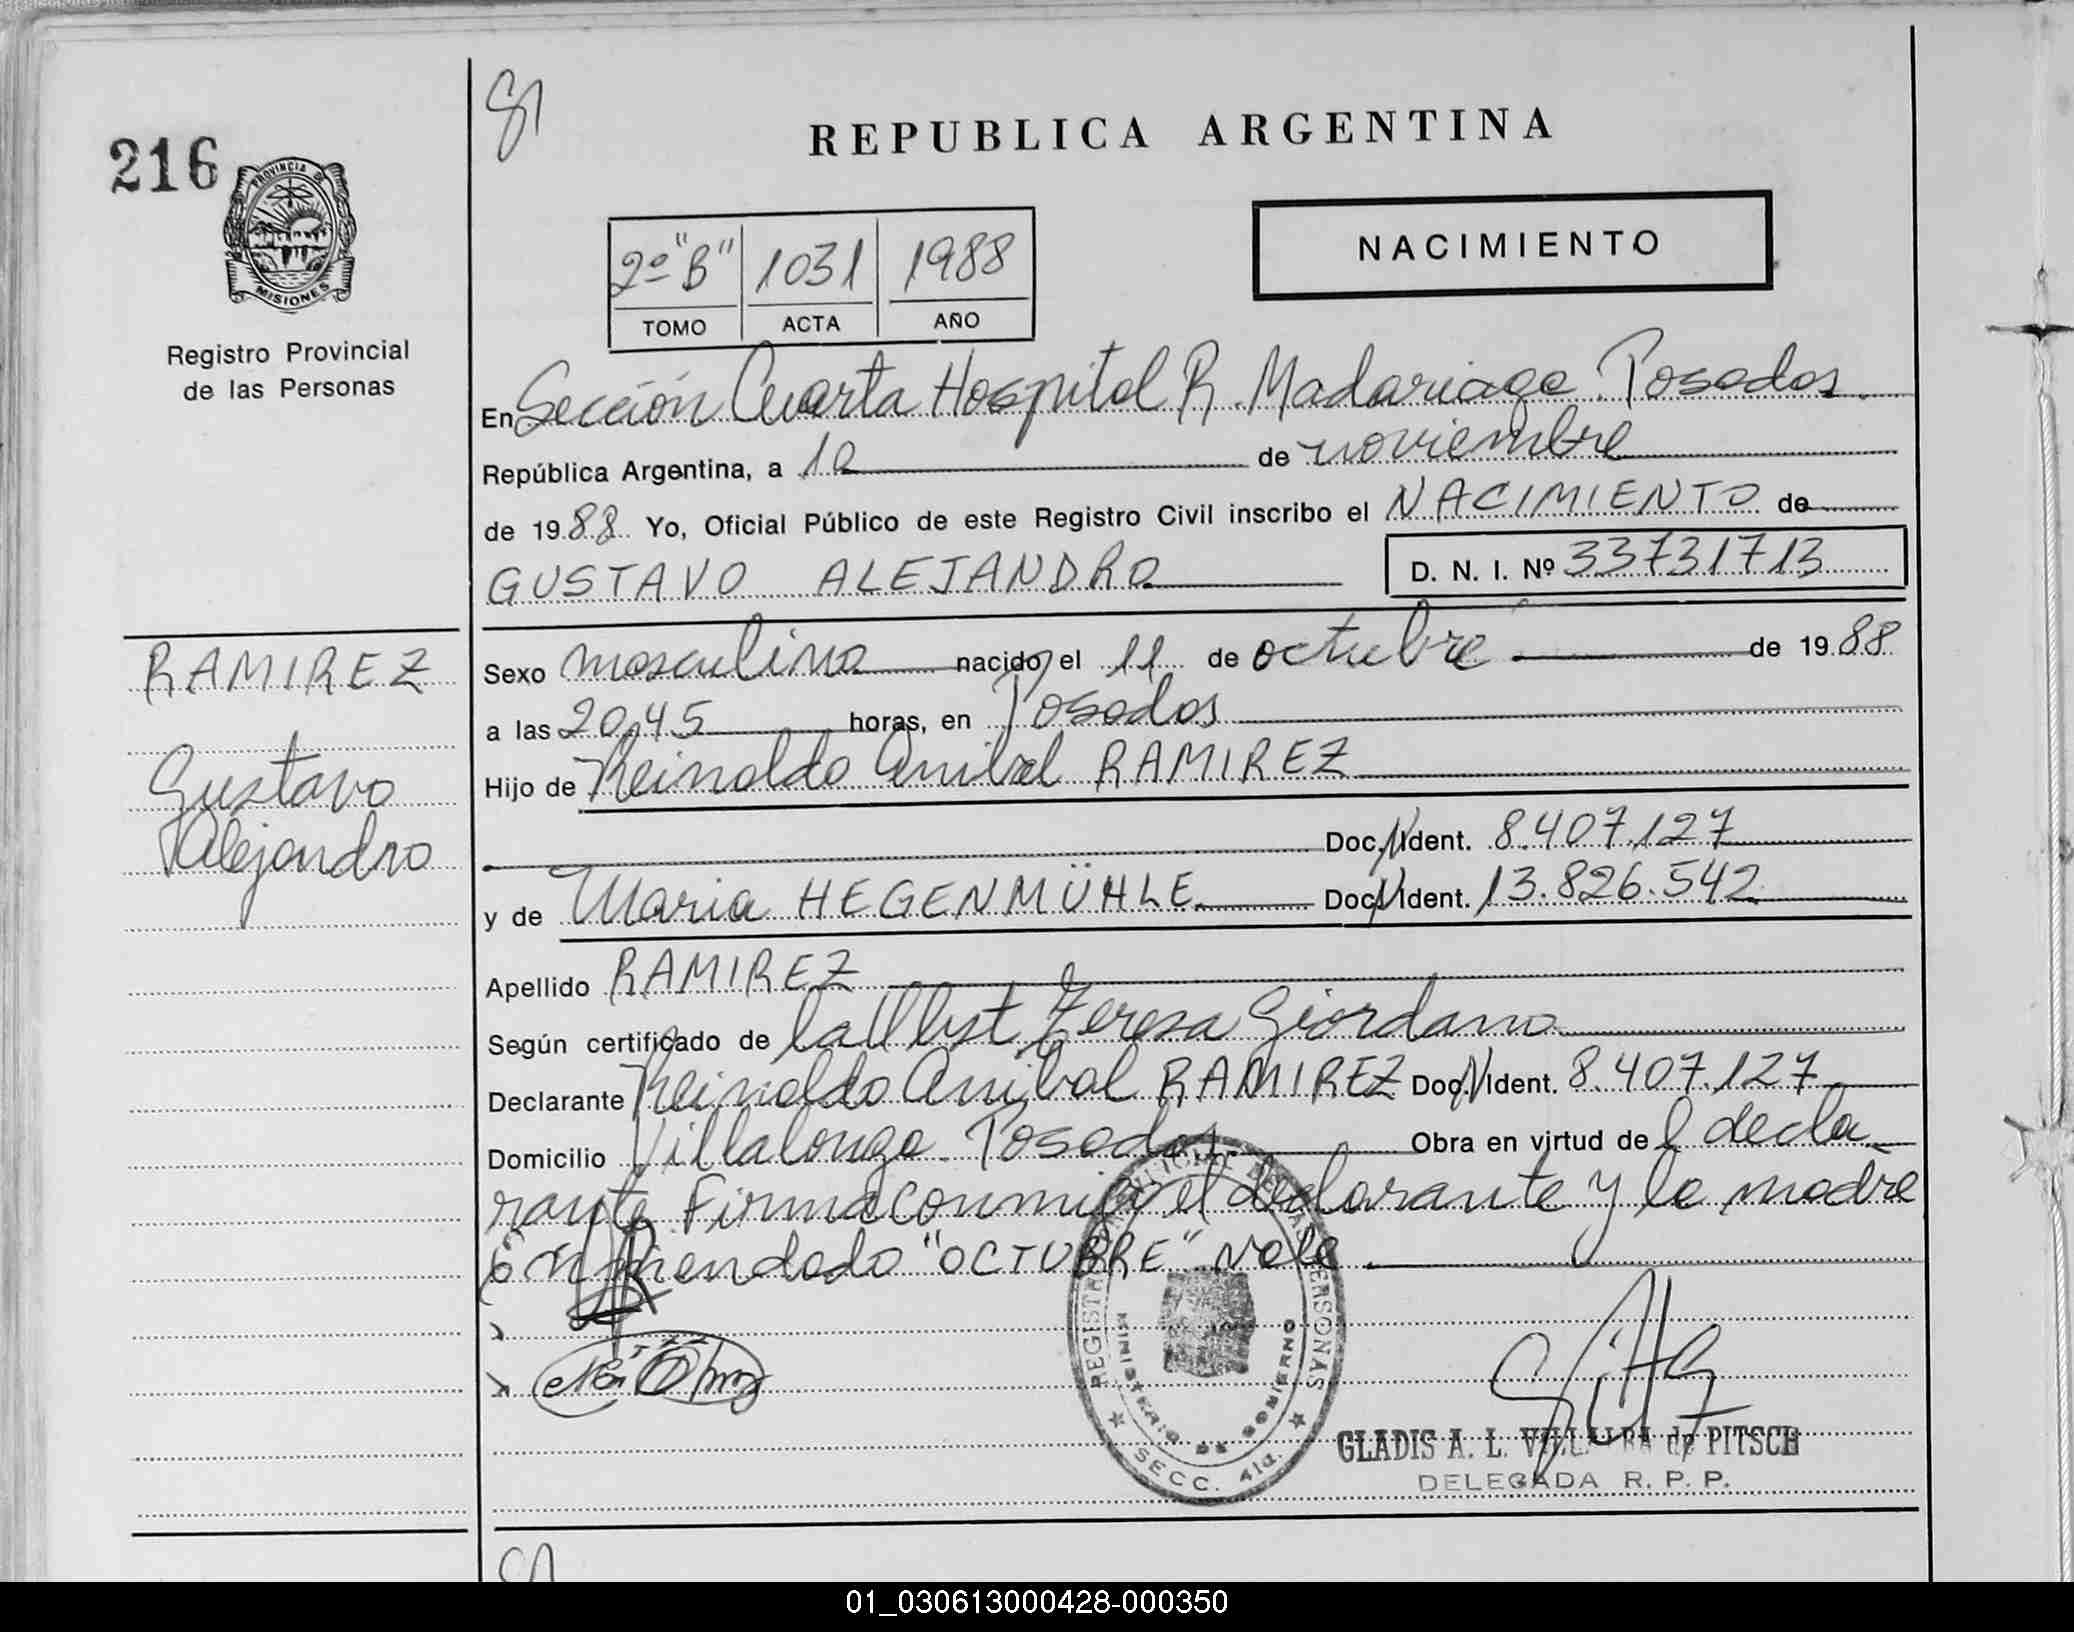 216
PROVINCIA DE
MISIONES
Registro Provincial
de las Personas
RAMIREZ
Gustavo
Alejandro
REPUBLICA ARGENTINA
NACIMIENTO
2º "B" 1031 1988
TOMO ACTA AÑO
En Sección Cuarta Hospital R. Madariaga. Posadas.
República Argentina, a 10 de noviembre
de 1988 Yo, Oficial Público de este Registro Civil inscribo el NACIMIENTO de
GUSTAVO ALEJANDRO D. N. I. Nº 33731713
Sexo masculino nacido el 11 de octubre de 1988
a las 20,45 horas, en Posadas
Hijo de Reinaldo Anibal RAMIREZ
Doc. N Ident. 8.407.127
y de Maria HEGENMÜHLE Doc. N Ident. 13.826.542
Apellido RAMIREZ
Según certificado de la Obst Teresa Giordano
Declarante Reinaldo Anibal RAMIREZ Doc. N Ident. 8.407.127
Domicilio Villalonga. Posadas. Obra en virtud de l decla
rante Firma conmigo el declarante y la madre
enmendado "OCTUBRE" Vale.
REGISTRO PROVINCIAL DE LAS PERSONAS
MINISTERIO DE GOBIERNO
SECC. 4ta.
GLADIS A. L. VILLALBA de PITSCH
DELEGADA R. P. P.
01_030613000428-000350